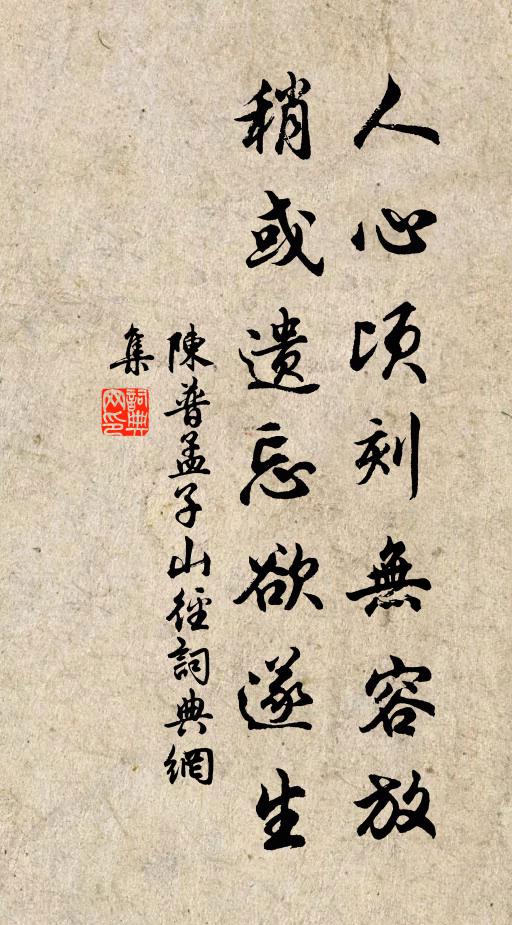 人心頃刻無容放
稍或遺忘欲遂生
陳普孟子山徑詞典網
集
詞典網印